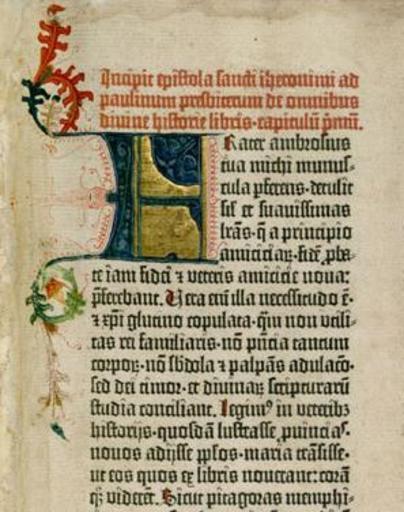 Incipit epistola sancti iheronimi ad
paulinum presbiterum de omnibus
divine historie libris·capitulū p̄mū.
Frater ambrosius
tua michi munus-
cula p̄ferens·detulit
sil' et suavissimas
lr̄as·q̄ a principio
amiciciaꝝ·fidē pba-
te iam fidei ⁊ veteris amicicie noua:
p̄ferebant. Vera em̄ illa necessitudo ē·
⁊ xp̄i glutino copulata·q̄m non vtili-
tas rei familiaris·nō p̄ncia tantum
corpoꝝ·nō sb̄dola ⁊ palpās adulaco·
sed dei timor·et diuinaꝝ scripturarū
studia conciliant. legimꝰ in veterib⁊
historijs·quosdā lustrasse ꝓuincias·
nouos adijsse pp̄los·maria trāsisse·
ut eos quos ex libris nouerant: corā
q̄⁊ viderēt. Sicut pitagoras memphi-